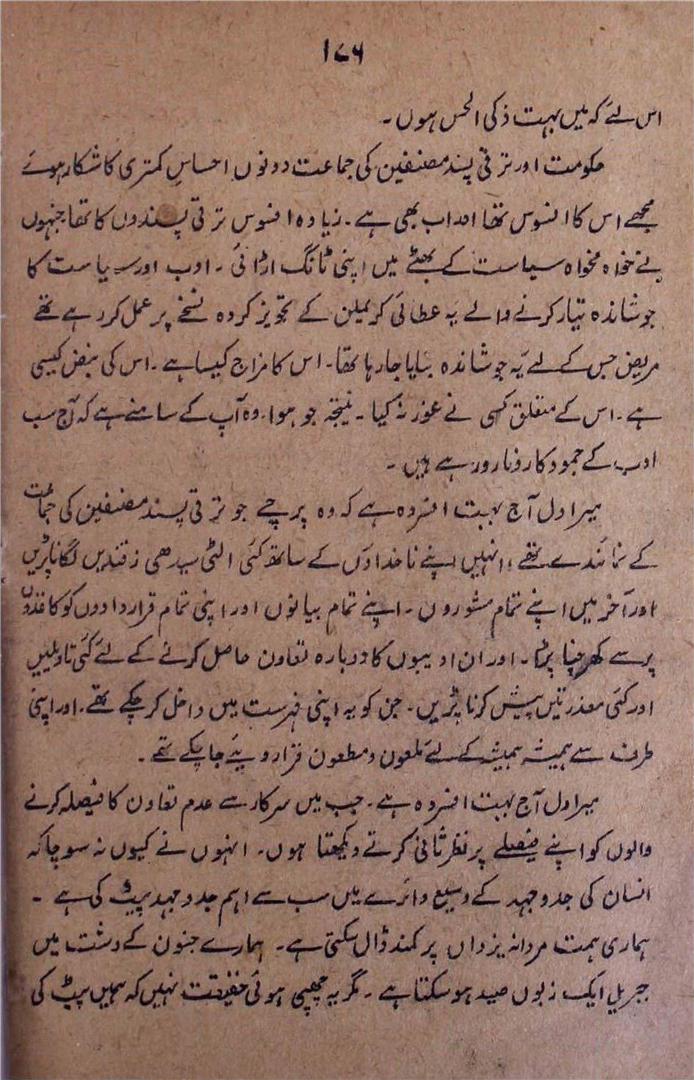 ۱۷۶
اس لئے کہ میں بہت ذکی الحس ہوں۔
حکومت اور ترقی پسند مصنفین کی جماعت دونوں احساسِ کمتری کا شکار ہوئے
مجھے اس کا افسوس تھا اور اب بھی ہے۔ زیادہ افسوس ترقی پسندوں کا تھا جنہوں
نے خواہ مخواہ سیاست کے پھٹے میں اپنی ٹانگ اڑائی ۔ ادب اور سیاست کا
جوشاندہ تیار کرنے والے یہ عطائی کریملن کے تجویز کردہ نسخے پر عمل کر رہے تھے
مریض جس کے لئے یہ جوشاندہ بنایا جا رہا تھا۔ اس کا مزاج کیسا ہے ۔ اس کی نبض کیسی
ہے ۔ اس کے متعلق کسی نے غور نہ کیا ۔ نتیجہ جو ہوا۔ وہ آپ کے سامنے ہے کہ آج سب
ادب کے جمود کا رونا رو رہے ہیں ۔
میرا دل آج بہت افسردہ ہے کہ وہ پرچے جو ترقی پسند مصنفین کی جماعت
کے نمائندے تھے، انہیں اپنے ناخداؤں کے ساتھ کئی الٹی سیدھی زقندیں لگانا پڑیں
اور آخر میں اپنے تمام مشوروں ۔ اپنے تمام بیانوں اور اپنی تمام قراردادوں کو کاغذوں
پر سے کھرچنا پڑا۔ اور ان ادیبوں کا دوبارہ تعاون حاصل کرنے کے لئے کئی تاویلیں
اور کئی معذرتیں پیش کرنا پڑیں۔ جن کو یہ اپنی فہرست میں داخل کر چکے تھے۔ اور اپنی
طرف سے ہمیشہ ہمیشہ کے لئے ملعون و مطعون قرار دیئے جا چکے تھے ۔
میرا دل آج بہت افسردہ ہے ۔ جب میں سرکار سے عدم تعاون کا فیصلہ کرنے
والوں کو اپنے فیصلے پر نظر ثانی کرتے دیکھتا ہوں۔ انہوں نے کیوں نہ سوچا کہ
انسان کی جدوجہد کے وسیع دائرے میں سب سے اہم جدوجہد پیٹ کی ہے ۔
ہماری ہمت مردانہ یزداں پر کمند ڈال سکتی ہے۔ ہمارے جنون کے دشت میں
جبریل ایک زبوں صید ہو سکتا ہے ۔ مگر یہ چھپی ہوئی حقیقت نہیں کہ ہمیں پیٹ کی